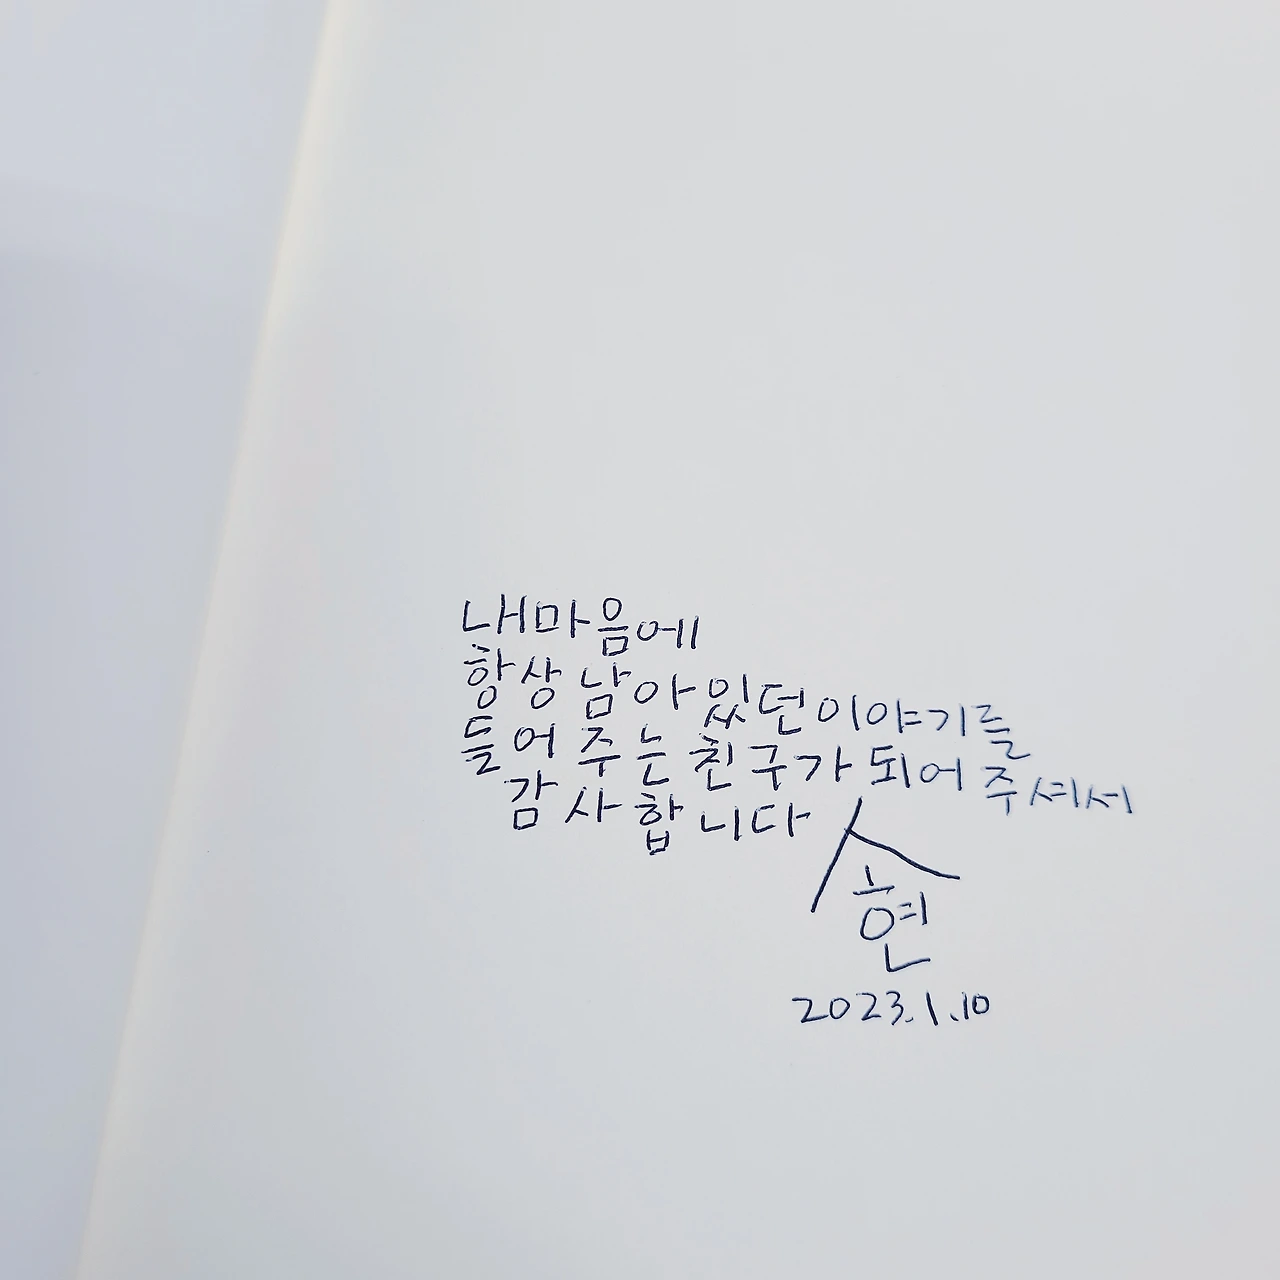 내마음에
항상 남아 있던 이야기를
들어 주는 친구가 되어 주셔서
감사합니다
2023.1.10